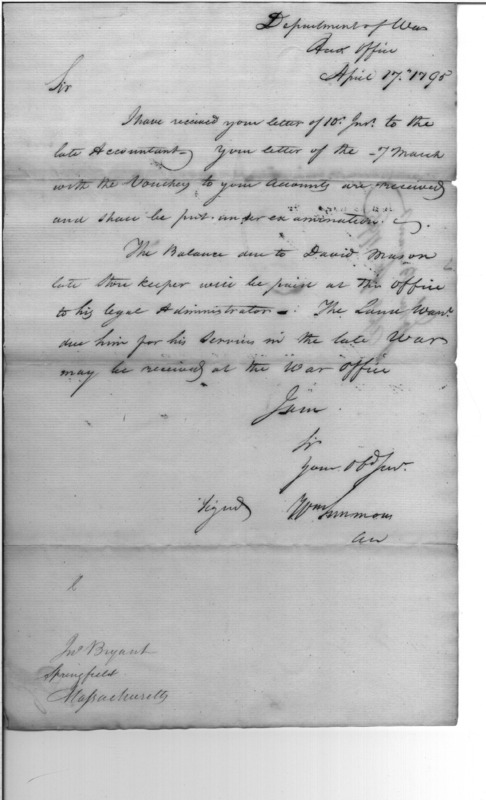 Department of War
Acct office
April 17th 1795
Sir
I have received your letter of 10th Inst. to the
late Accountant your letter of the 7 March
with the Vouchers to your Accounts are received
and shall be put under examination.
The Balance due to David Mason
late Store keeper will be paid at this office
to his legal Administrator. The Land Warrt.
due him for his Services in the late War
may be received at the War office
I am
Sir
Your Obd. Serv.
Signed Wm Simmons
Jno. Bryant
Springfield
Massachusetts